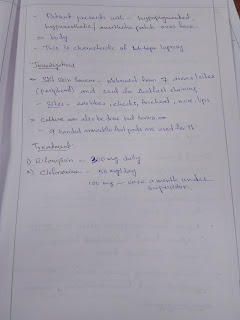 - Patient presents with - hypopigmented,
hypoaesthetic / anaesthetic patch over face
or body
- This is characteristic of leprosy
Investigations
Slit skin smear - obtained from 7 areas/sites
(peripheral) and send for Acid fast staining
- Sites - earlobes, cheeks, forehead, nose, lips
Culture can also be done but
- 9 banded armadillo foot pads are used for it
Treatment
1) Rifampicin - 300 mg daily
2) Clofazimine - 50 mg/day
100 mg - once a month under
supervision.